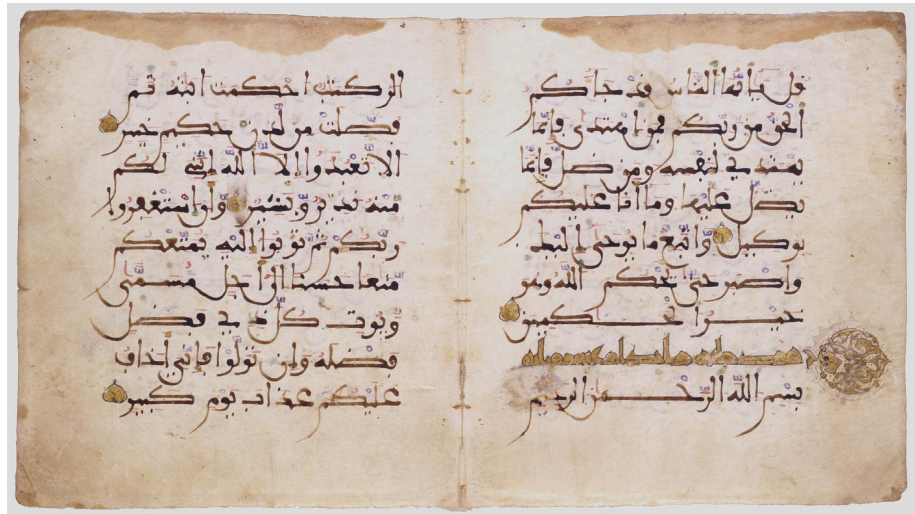 قل يايها الناس قد جاكم
الحق من ربكم فمن اهتدى فإنما
يهتدي لنفسه ومن ضل فإنما
يضل عليها وما أنا عليكم
بوكيل واتبع ما يوحى إليك
واصبر حتى يحكم الله وهو
خير الحكمين
بسم الله الرحمن الرحيم
الر كتب احكمت ايته ثم
فصلت من لدن حكيم خبير
الا تعبدوا إلا الله إنني لكم
منه نذير وبشير وان استغفروا
ربكم ثم توبوا إليه يمتعكم
متعا حسنا إلى أجل مسمى
ويوت كل ذي فضل
فضله وإن تولوا فإني أخاف
عليكم عذاب يوم كبير